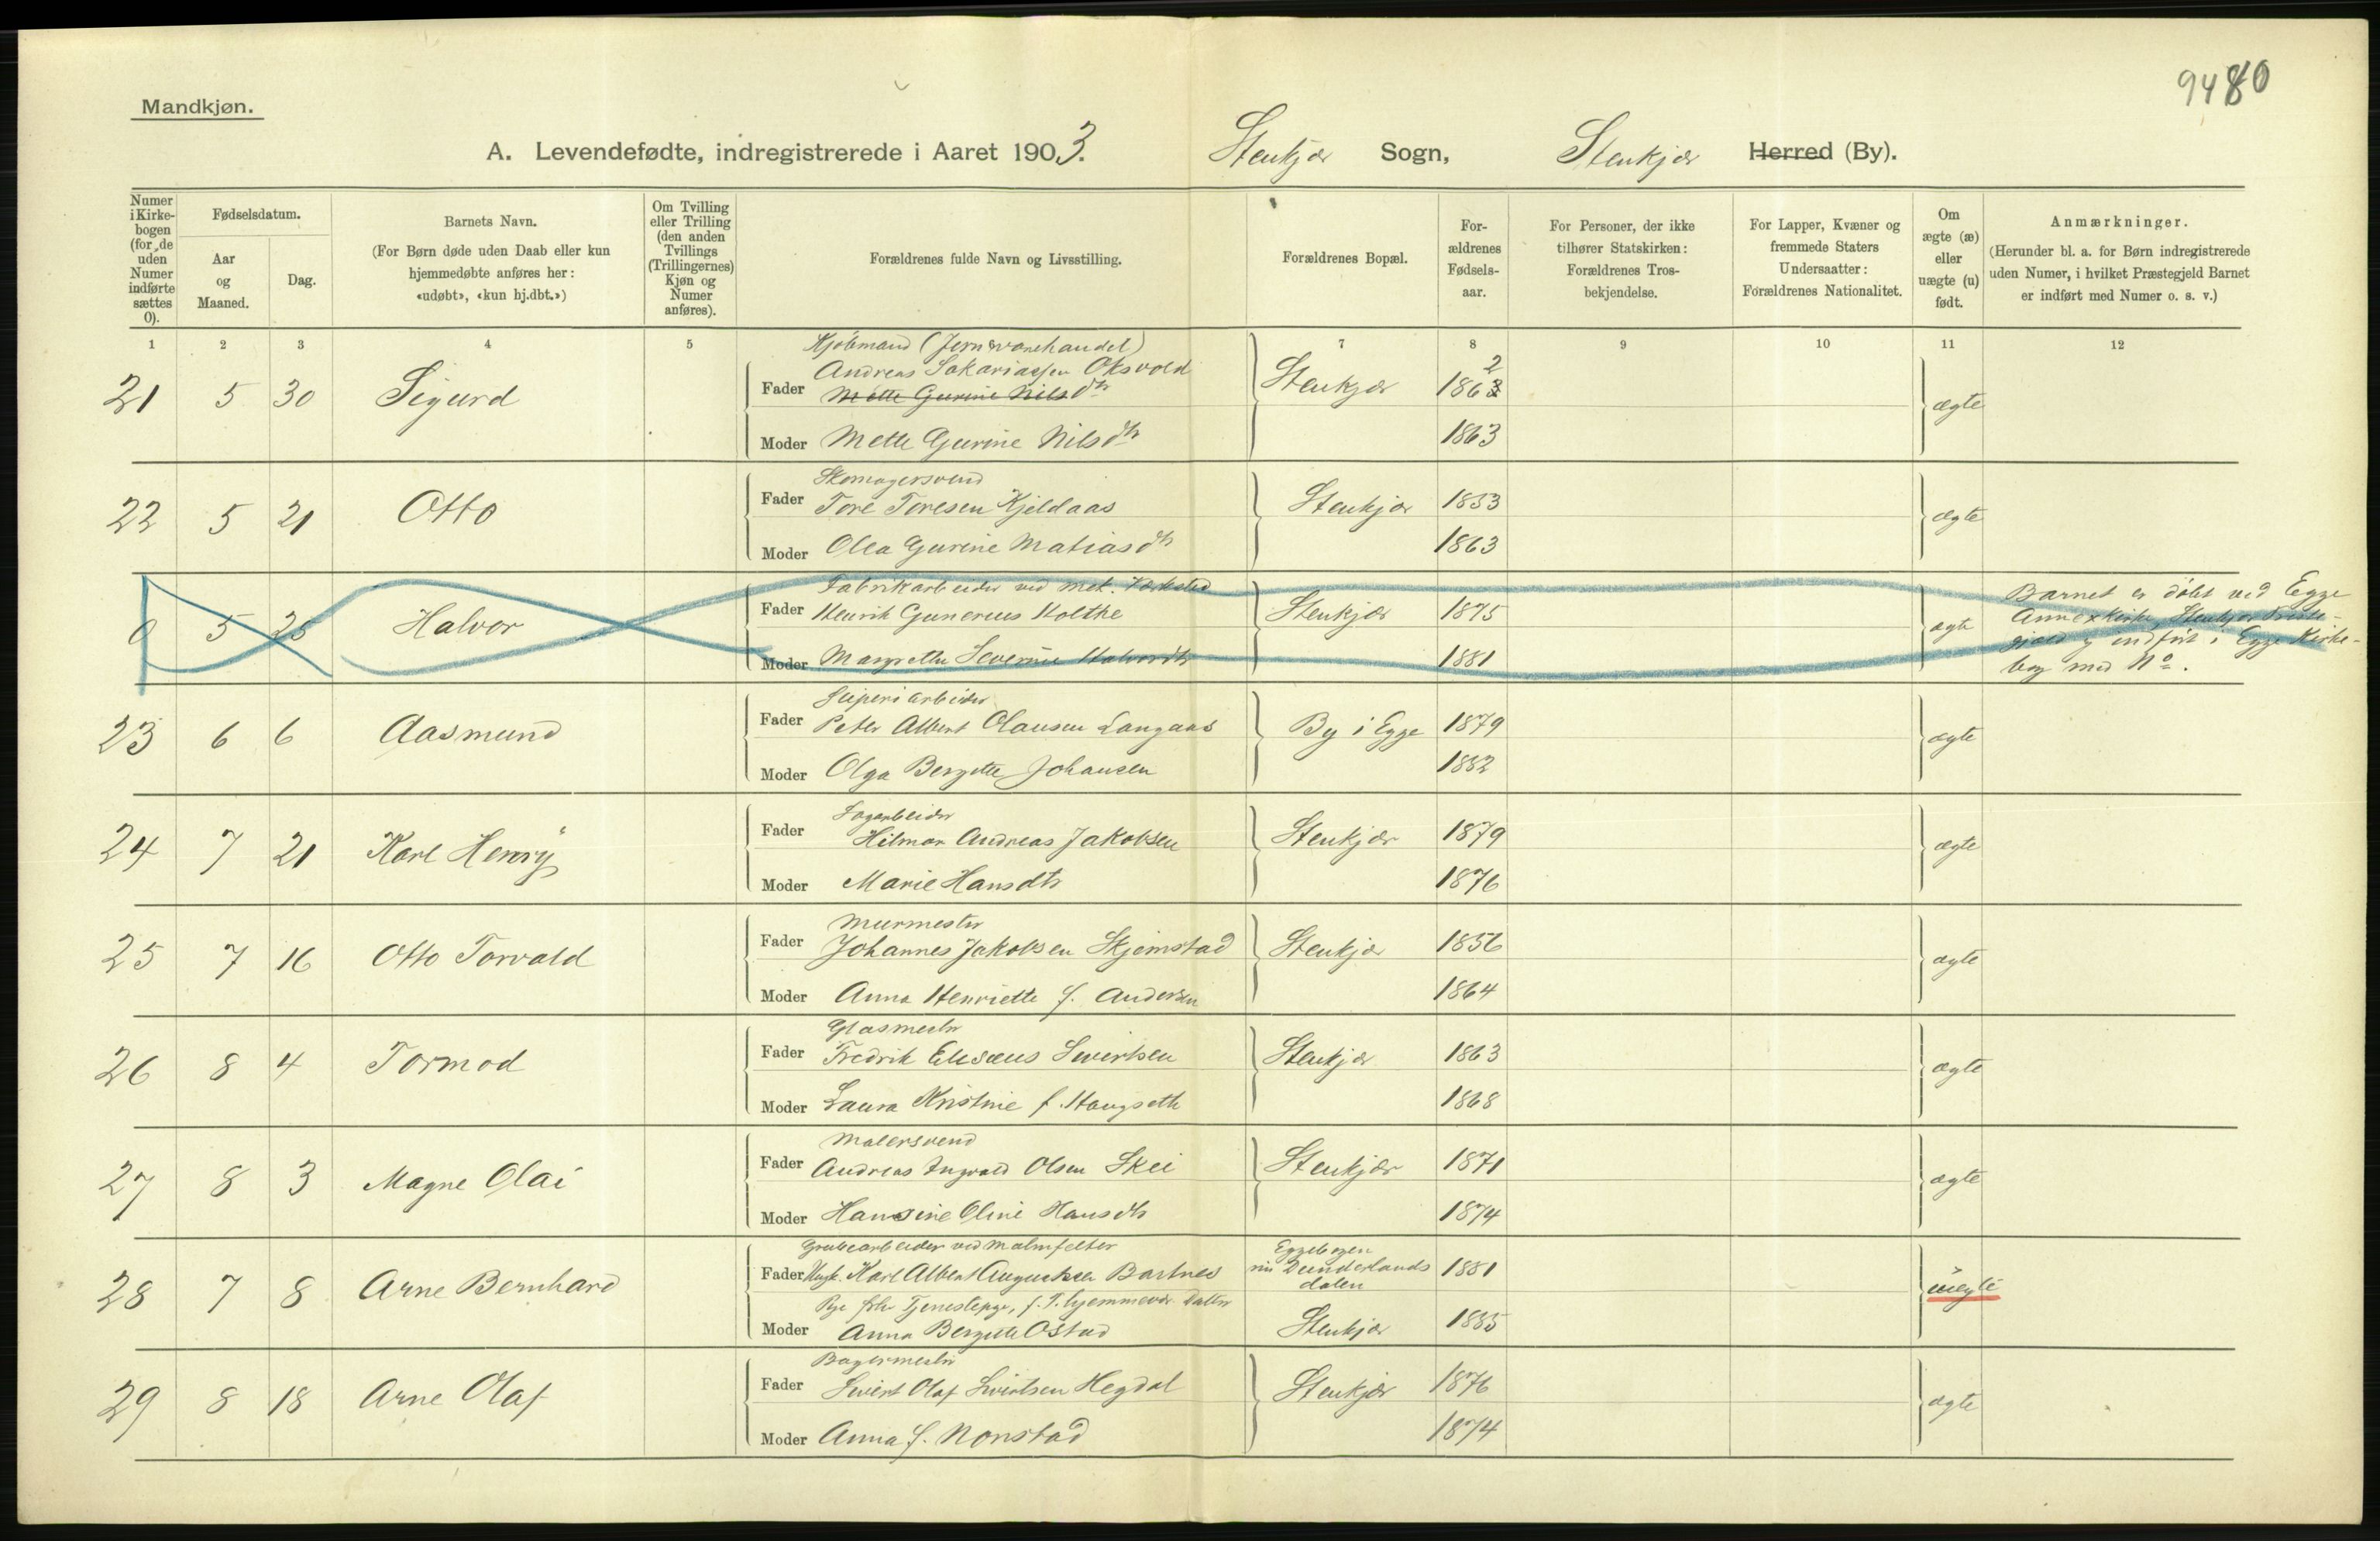 9480
Mandkjøn.
A. Levendefødte, indregistrerede i Aaret 1903. Stenkjær Sogn, Stenkjær Herred (By).
Numer i Kirkebogen (for de uden Numer indførte sættes 0).
Fødselsdatum.
Aar og Maaned.
Dag.
Barnets Navn.
(For Børn døde uden Daab eller kun hjemmedøbte anføres her: «udøbt», «kun hj.dbt.»)
Om Tvilling eller Trilling (den anden Tvillings (Trillingernes) Kjøn og Numer anføres).
Forældrenes fulde Navn og Livsstilling.
Forældrenes Bopæl.
Forældrenes Fødselsaar.
For Personer, der ikke tilhører Statskirken: Forældrenes Trosbekjendelse.
For Lapper, Kvæner og fremmede Staters Undersaatter: Forældrenes Nationalitet.
Om ægte (æ) eller uægte (u) født.
Anmærkninger.
(Herunder bl. a. for Børn indregistrerede uden Numer, i hvilket Præstegjeld Barnet er indført med Numer o. s. v.)
1 2 3 4 5 7 8 9 10 11 12
Kjøbmand (Jernvarehandel)
21 5 30 Sigurd Fader Andreas Sakariassen Oksvold Stenkjær 1862 ægte
Mette Gurine Nilsdtr
Moder Mette Gurine Nilsdtr 1863
Skomagersvend
22 5 21 Otto Fader Tore Toresen Kjeldaas Stenkjær 1853 ægte
Moder Olea Gurine Matiasdtr 1863
Fabrikarbeider ved mek. Værksted
0 5 25 Halvor Fader Henrik Gunerius Holthe Stenkjær 1875 ægte
Moder Margrethe Severine Halvorsdtr 1881
Barnet er døbt ved Egge
Annexkirke, Stenkjær Præste-
gjæld og indført i Egge Kirke-
bog med No.
Sliperiarbeider
23 6 6 Aasmund Fader Peter Albert Olausen Langaas By i Egge 1879 ægte
Moder Olga Bergitte Johansen 1882
Sagarbeider
24 7 21 Karl Henry Fader Hilmar Andreas Jakobsen Stenkjær 1879 ægte
Moder Marie Hansdtr 1876
Murmester
25 7 16 Otto Torvald Fader Johannes Jakobsen Skjemstad Stenkjær 1856 ægte
Moder Anna Henriette f. Andersen 1864
Glasmester
26 8 4 Tormod Fader Fredrik Elisæus Sivertsen Stenkjær 1863 ægte
Moder Laura Kristine f. Haugseth 1868
Malersvend
27 8 3 Magne Olai Fader Andreas Ingvald Olsen Skei Stenkjær 1871 ægte
Moder Hansine Oline Hansdtr 1874
Grubearbeider ved Malmfelter
28 7 8 Arne Bernhard Fader Ungk. Karl Albert Augustsen Bartnes Eggebogen nu Dunderlandsdalen 1881 uægte
Pige før Tjenestepge, f. T. hjemmevær. Datter
Moder Anna Bergitte Østad Stenkjær 1885
Bagermester
29 8 18 Arne Olaf Fader Sivert Olaf Sivertsen Hegdal Stenkjær 1876 ægte
Moder Anna f. Nonstad 1874